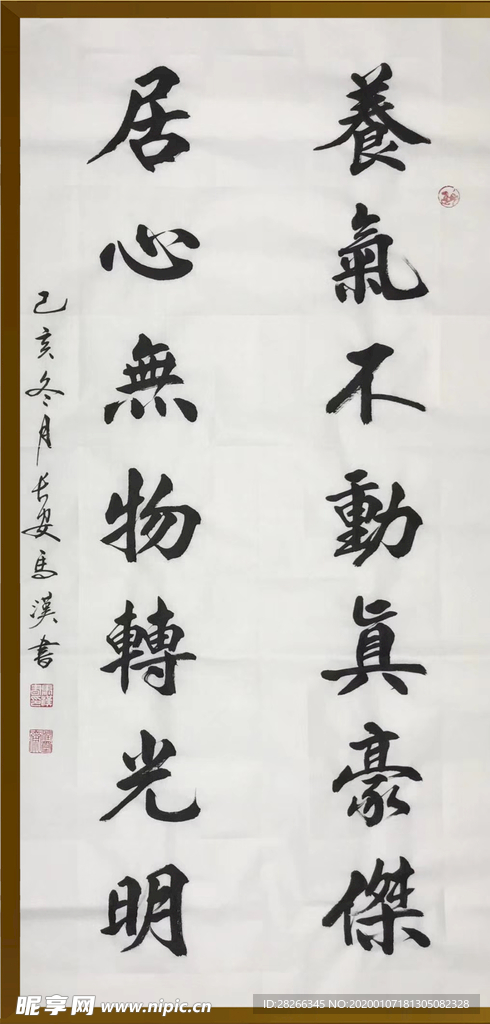 養氣不動真豪傑
居心無物轉光明
己亥冬月長安馬漢書
昵享网 www.nipic.cn
ID:28266345 NO:20200107181305082328